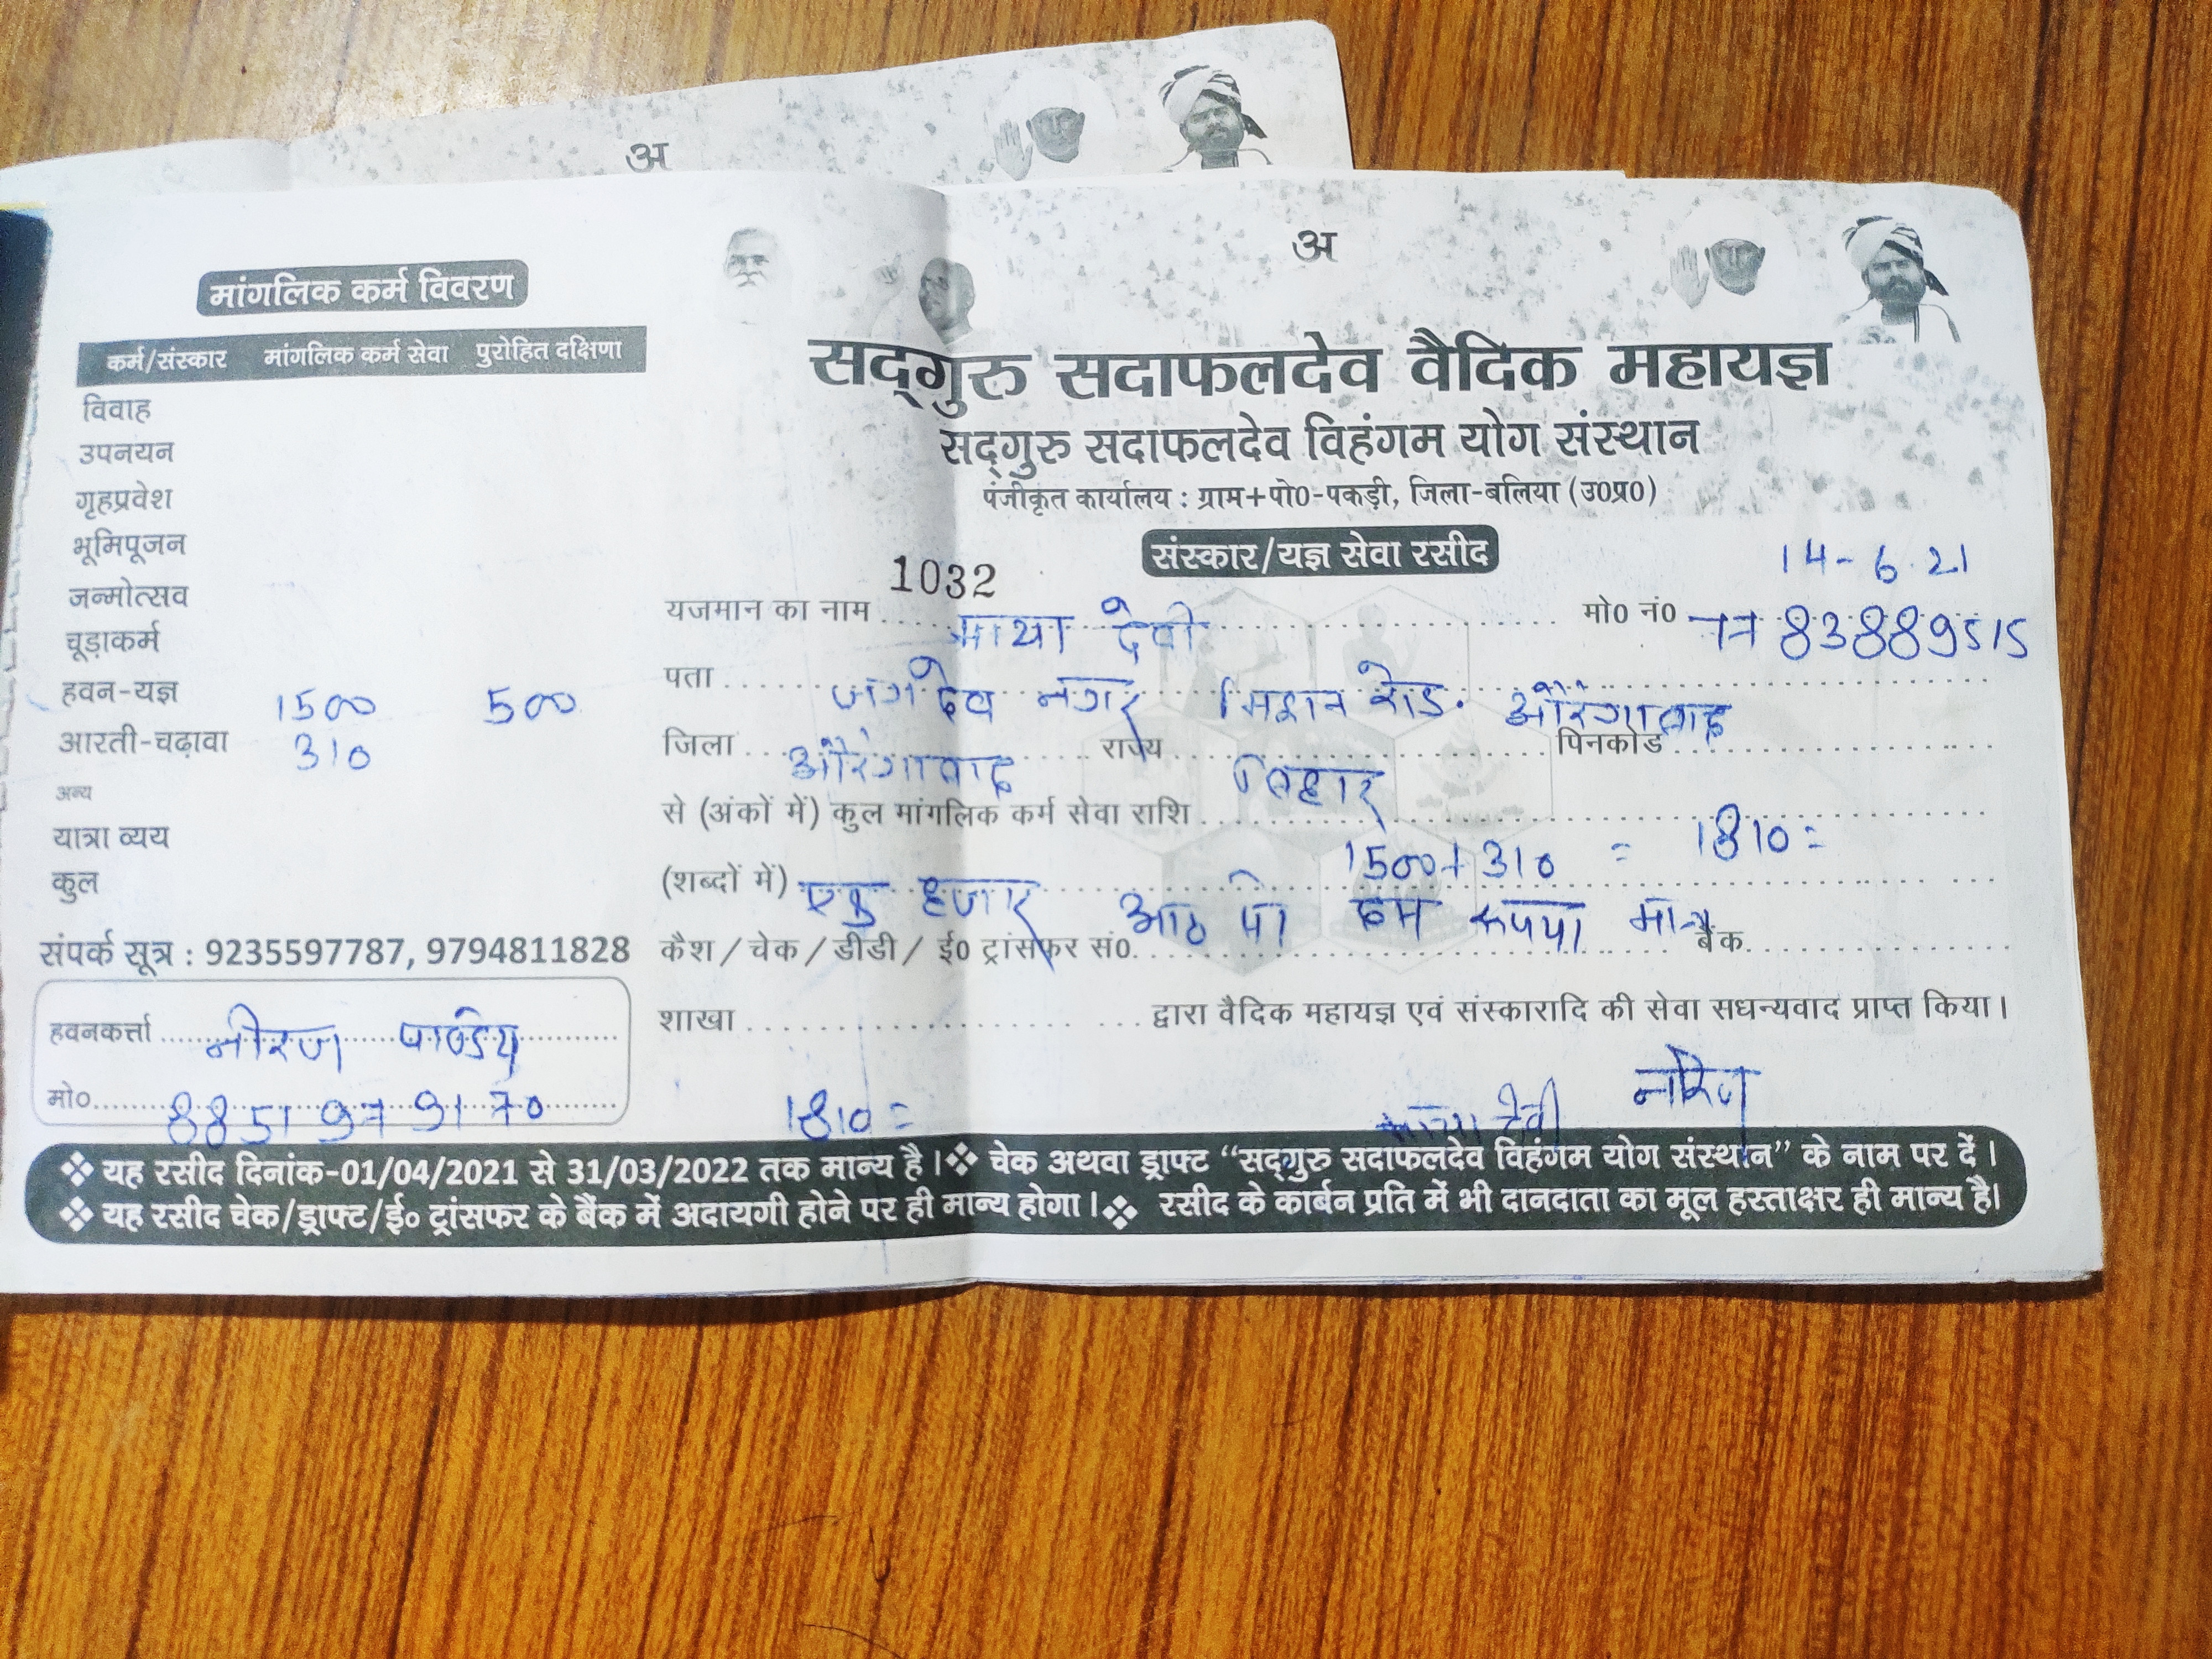 अ
अ
मांगलिक कर्म विवरण
कर्म/संस्कार मांगलिक कर्म सेवा पुरोहित दक्षिणा
विवाह
उपनयन
गृहप्रवेश
भूमिपूजन
जन्मोत्सव
चूड़ाकर्म
हवन-यज्ञ 1500 500
आरती-चढ़ावा 310
अन्य
यात्रा व्यय
कुल
संपर्क सूत्र : 9235597787, 9794811828
हवनकर्त्ता नीरज पाण्डेय
मो० 8851979170
सद्गुरु सदाफलदेव वैदिक महायज्ञ
सद्गुरु सदाफलदेव विहंगम योग संस्थान
पंजीकृत कार्यालय : ग्राम+पो0-पकड़ी, जिला-बलिया (उ0प्र0)
संस्कार/यज्ञ सेवा रसीद
14-6.21
1032
यजमान का नाम माया देवी मो0 नं0 7783889515
पता जगदेव नगर मिशन रोड. औरंगाबाद
जिला औरंगाबाद राज्य बिहार पिनकोड
से (अंकों में) कुल मांगलिक कर्म सेवा राशि
1500+310 = 1810=
(शब्दों में) एक हजार आठ सौ दस रूपया मात्र
कैश / चेक / डीडी / ई0 ट्रांसफर सं0 बैंक
शाखा द्वारा वैदिक महायज्ञ एवं संस्कारादि की सेवा सधन्यवाद प्राप्त किया।
1810= माया देवी नीरज
❖ यह रसीद दिनांक-01/04/2021 से 31/03/2022 तक मान्य है। ❖ चेक अथवा ड्राफ्ट “सद्गुरु सदाफलदेव विहंगम योग संस्थान” के नाम पर दें।
❖ यह रसीद चेक/ड्राफ्ट/ई० ट्रांसफर के बैंक में अदायगी होने पर ही मान्य होगा। ❖ रसीद के कार्बन प्रति में भी दानदाता का मूल हस्ताक्षर ही मान्य है।